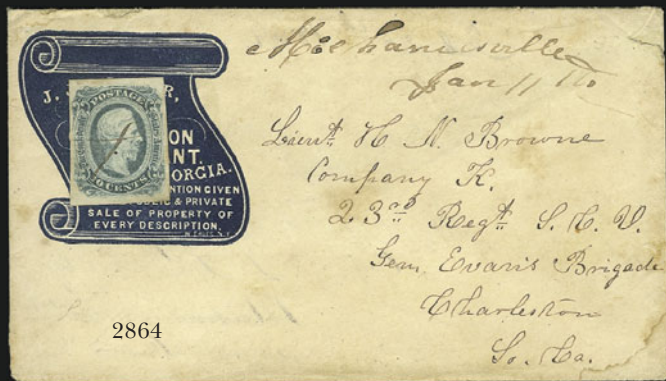 Mechanicsville
Jan 11th
J. R,
POSTAGE
ON
ANT.
ORGIA.
CENTS
NTION GIVEN
& PRIVATE
SALE OF PROPERTY OF
EVERY DESCRIPTION.
Lieut. H N. Browne
Company K.
23rd Regt. S. C. V.
Gen. Evans Brigade
Charleston
So. Ca.
2864